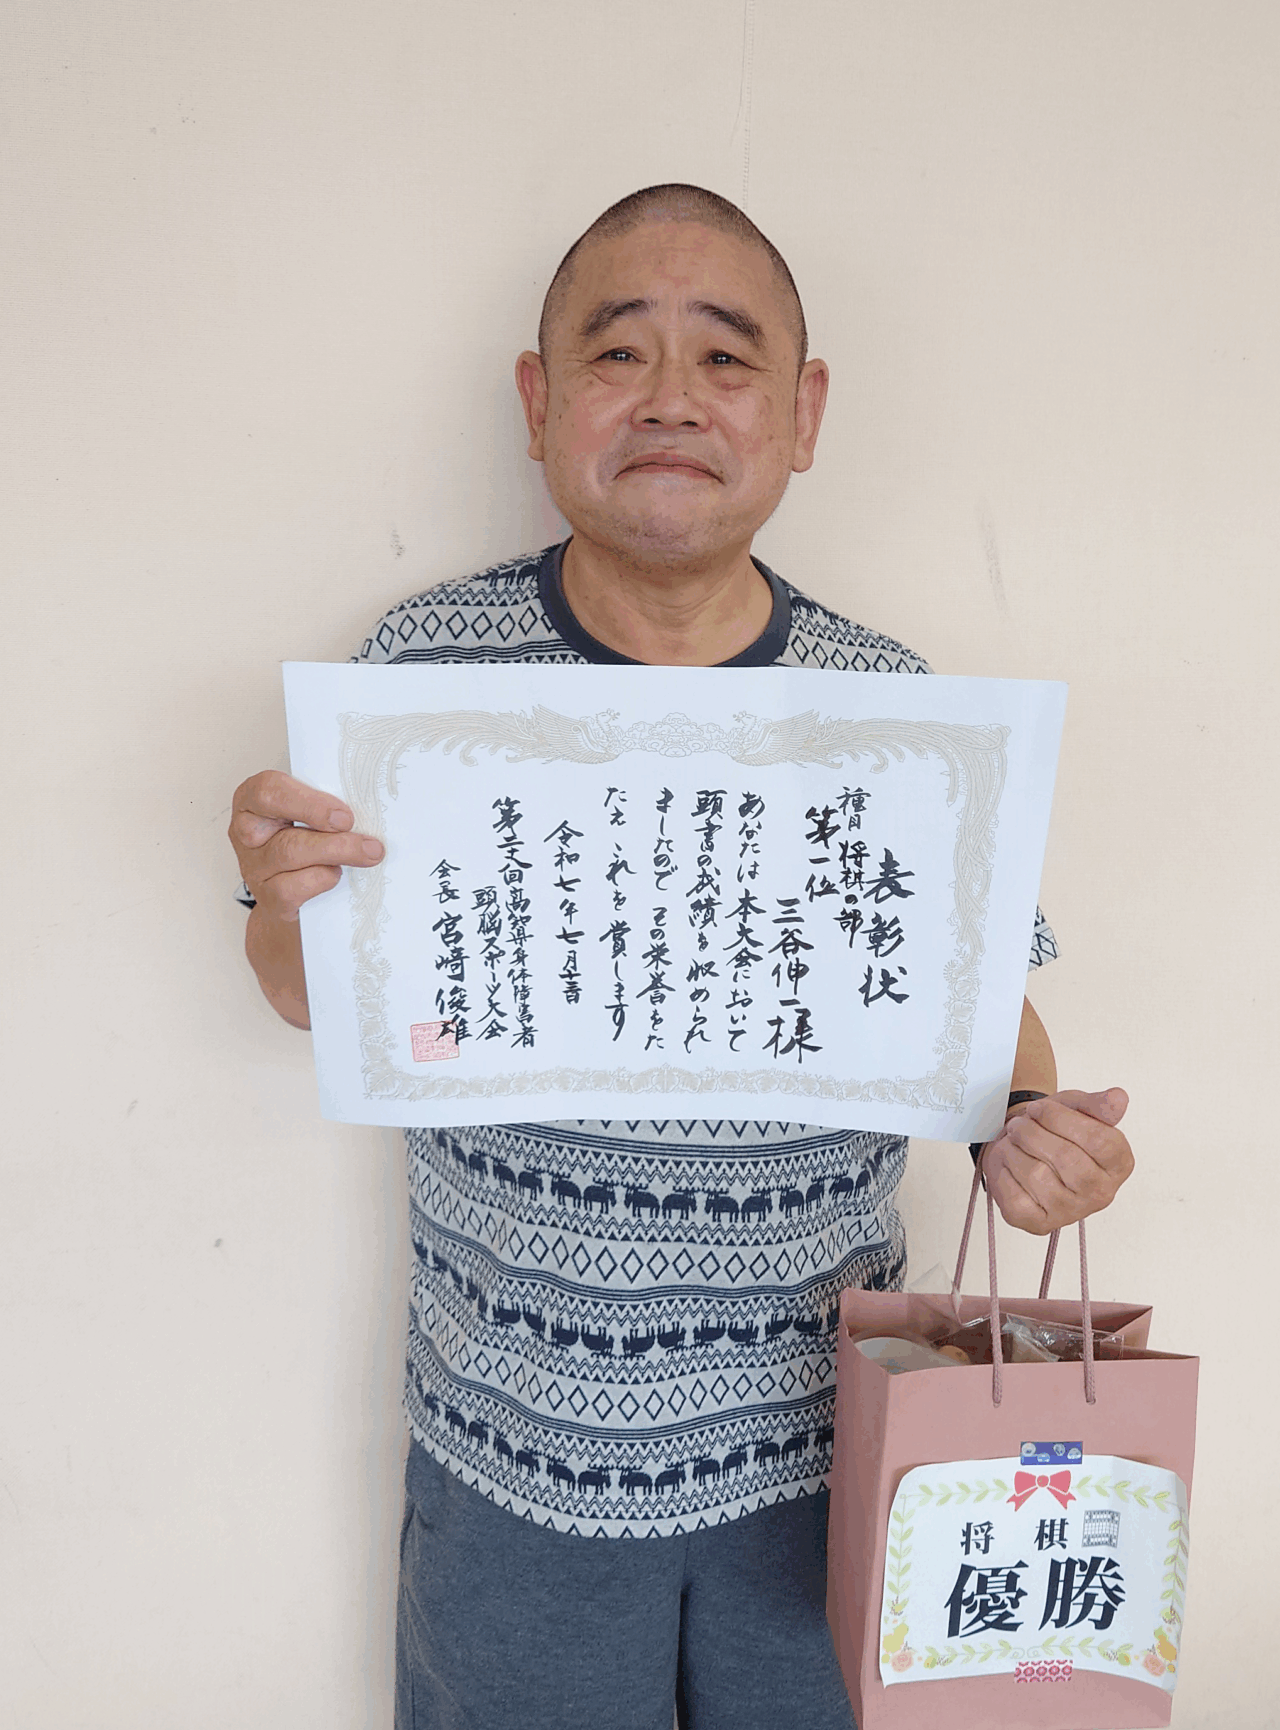 表彰状
種目 将棋の部
第一位
三谷伸一様
あなたは本大会において
頭書の成績を収められ
ましたので その栄誉をた
たえ これを賞します
令和七年七月十三日
第二十八回高知県身体障害者
頭脳スポーツ大会
会長 宮﨑俊雄
将棋
優勝